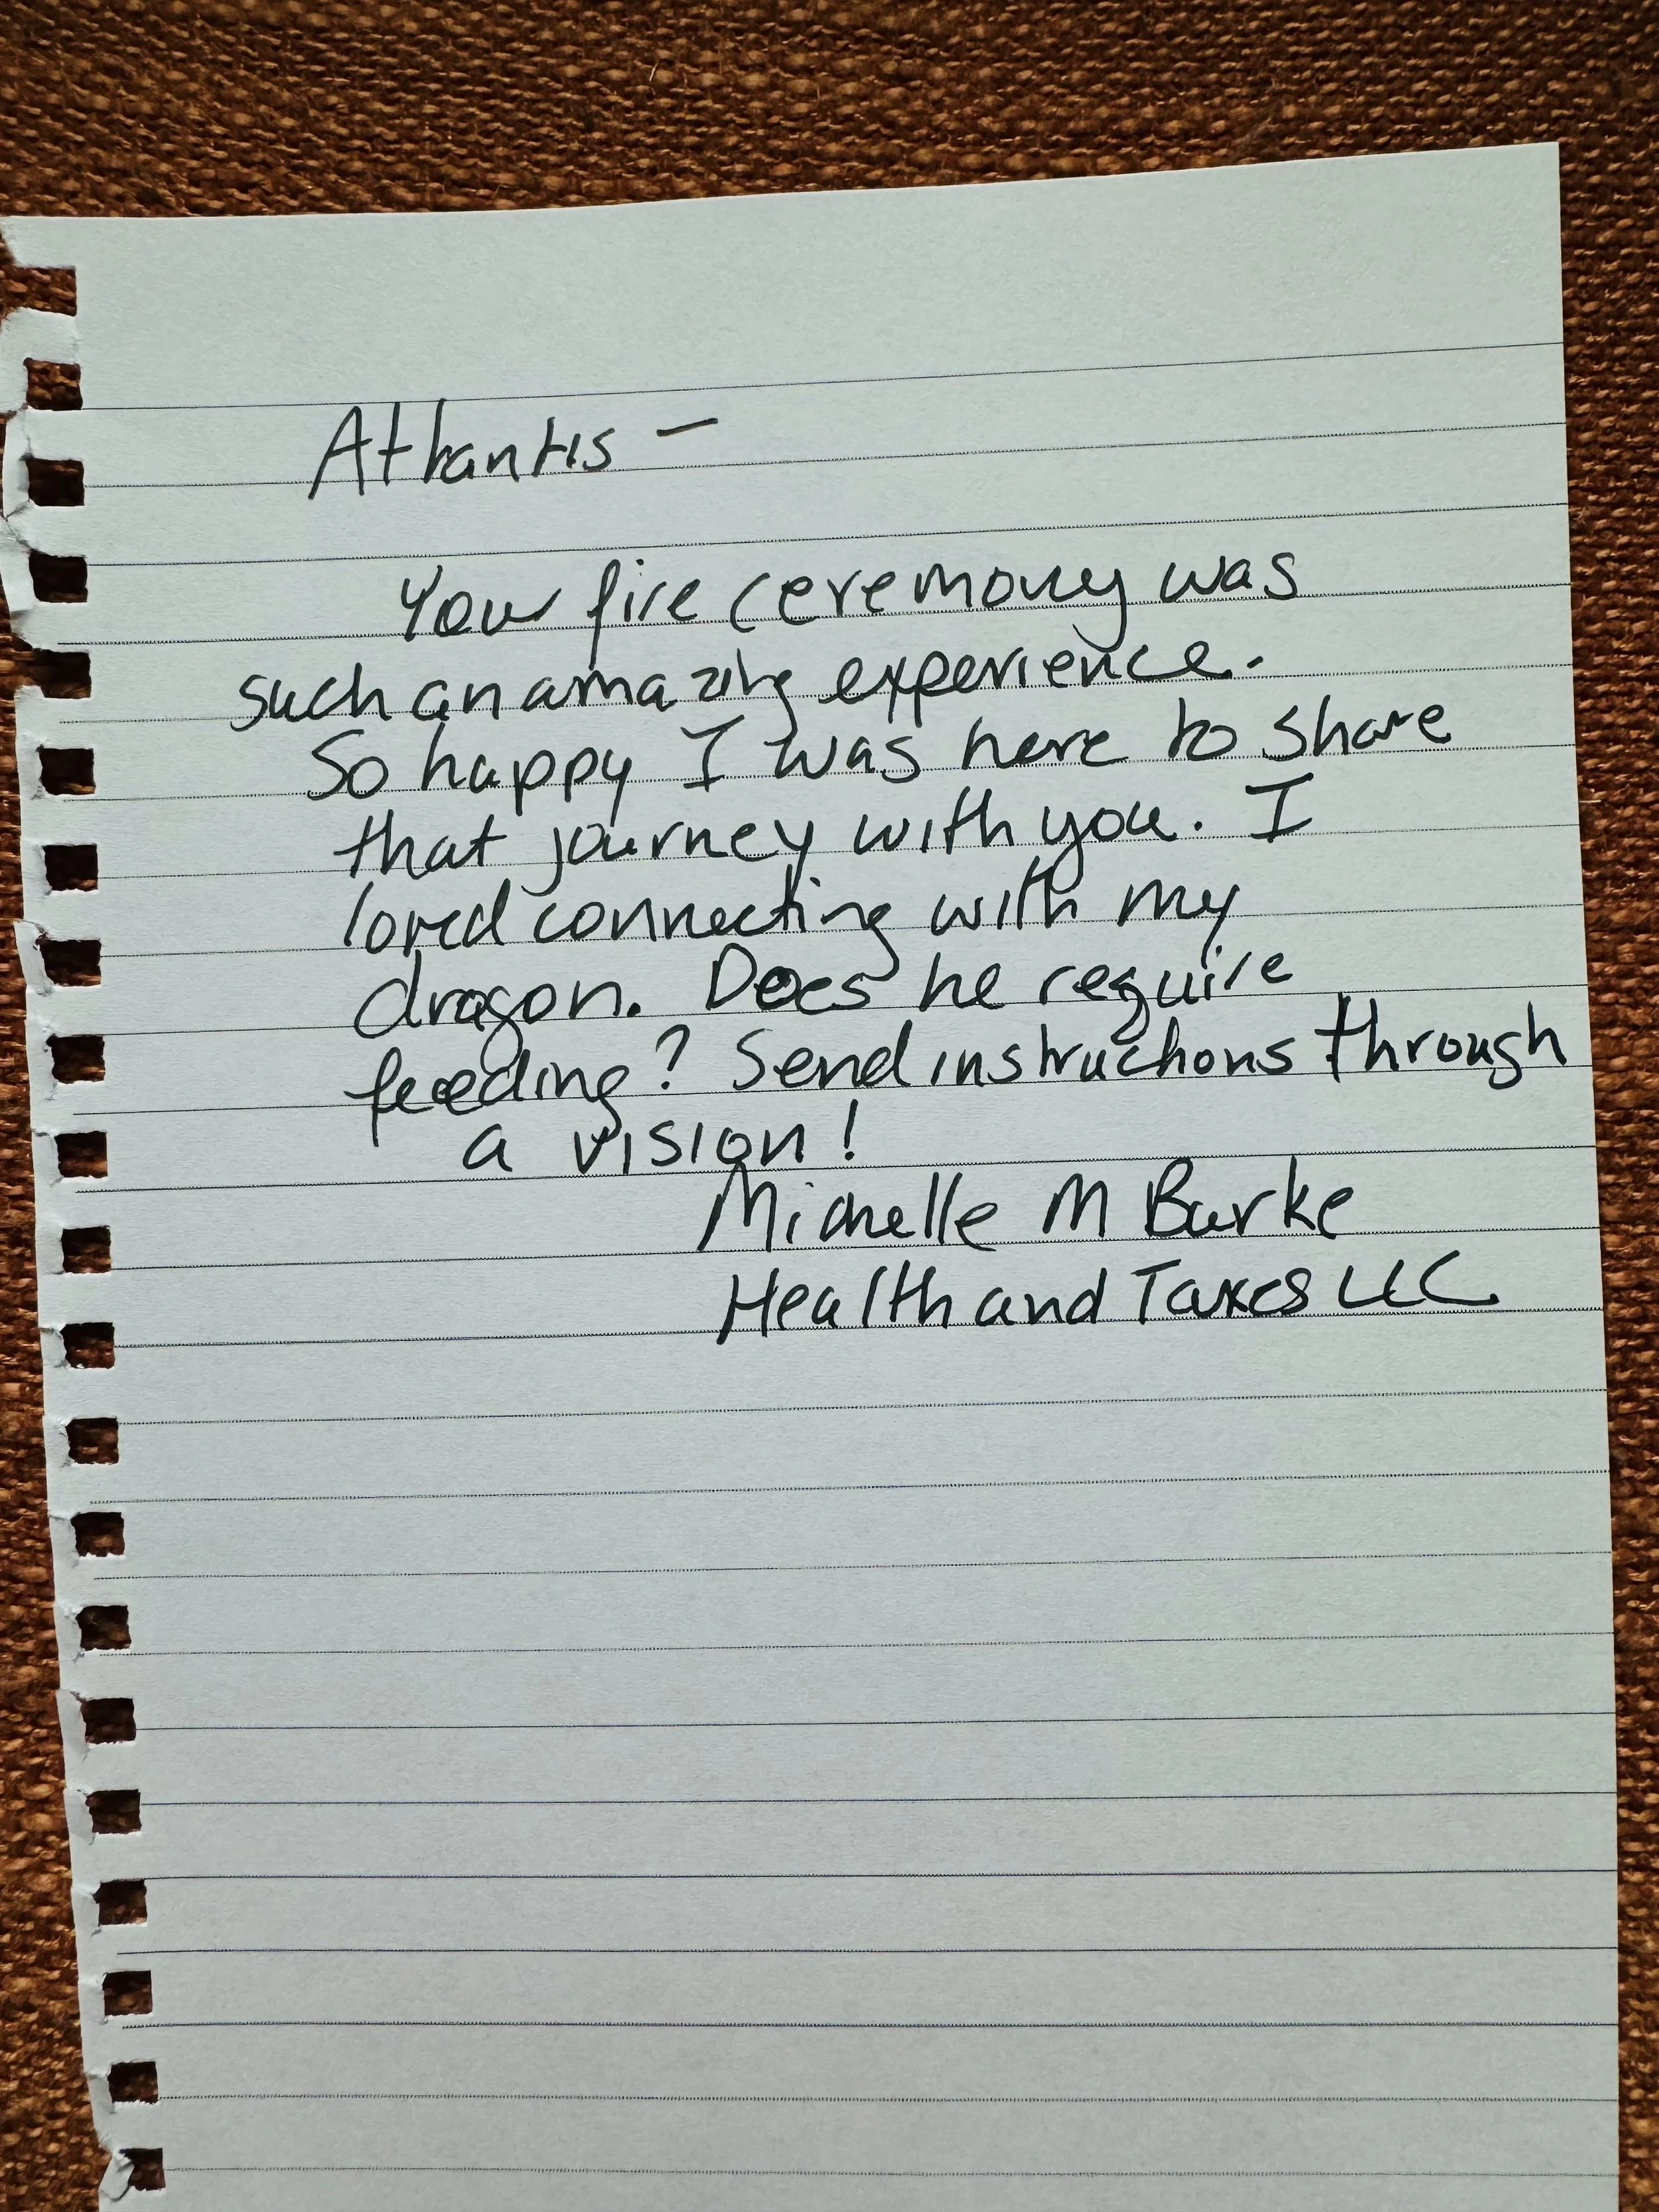 Atlantis –
Your fire ceremony was
such an amazing experience.
So happy I was here to share
that journey with you. I
loved connecting with my
dragon. Does he require
feeding? Send instructions through
a vision!
Michelle M Burke
Health and Taxes LLC